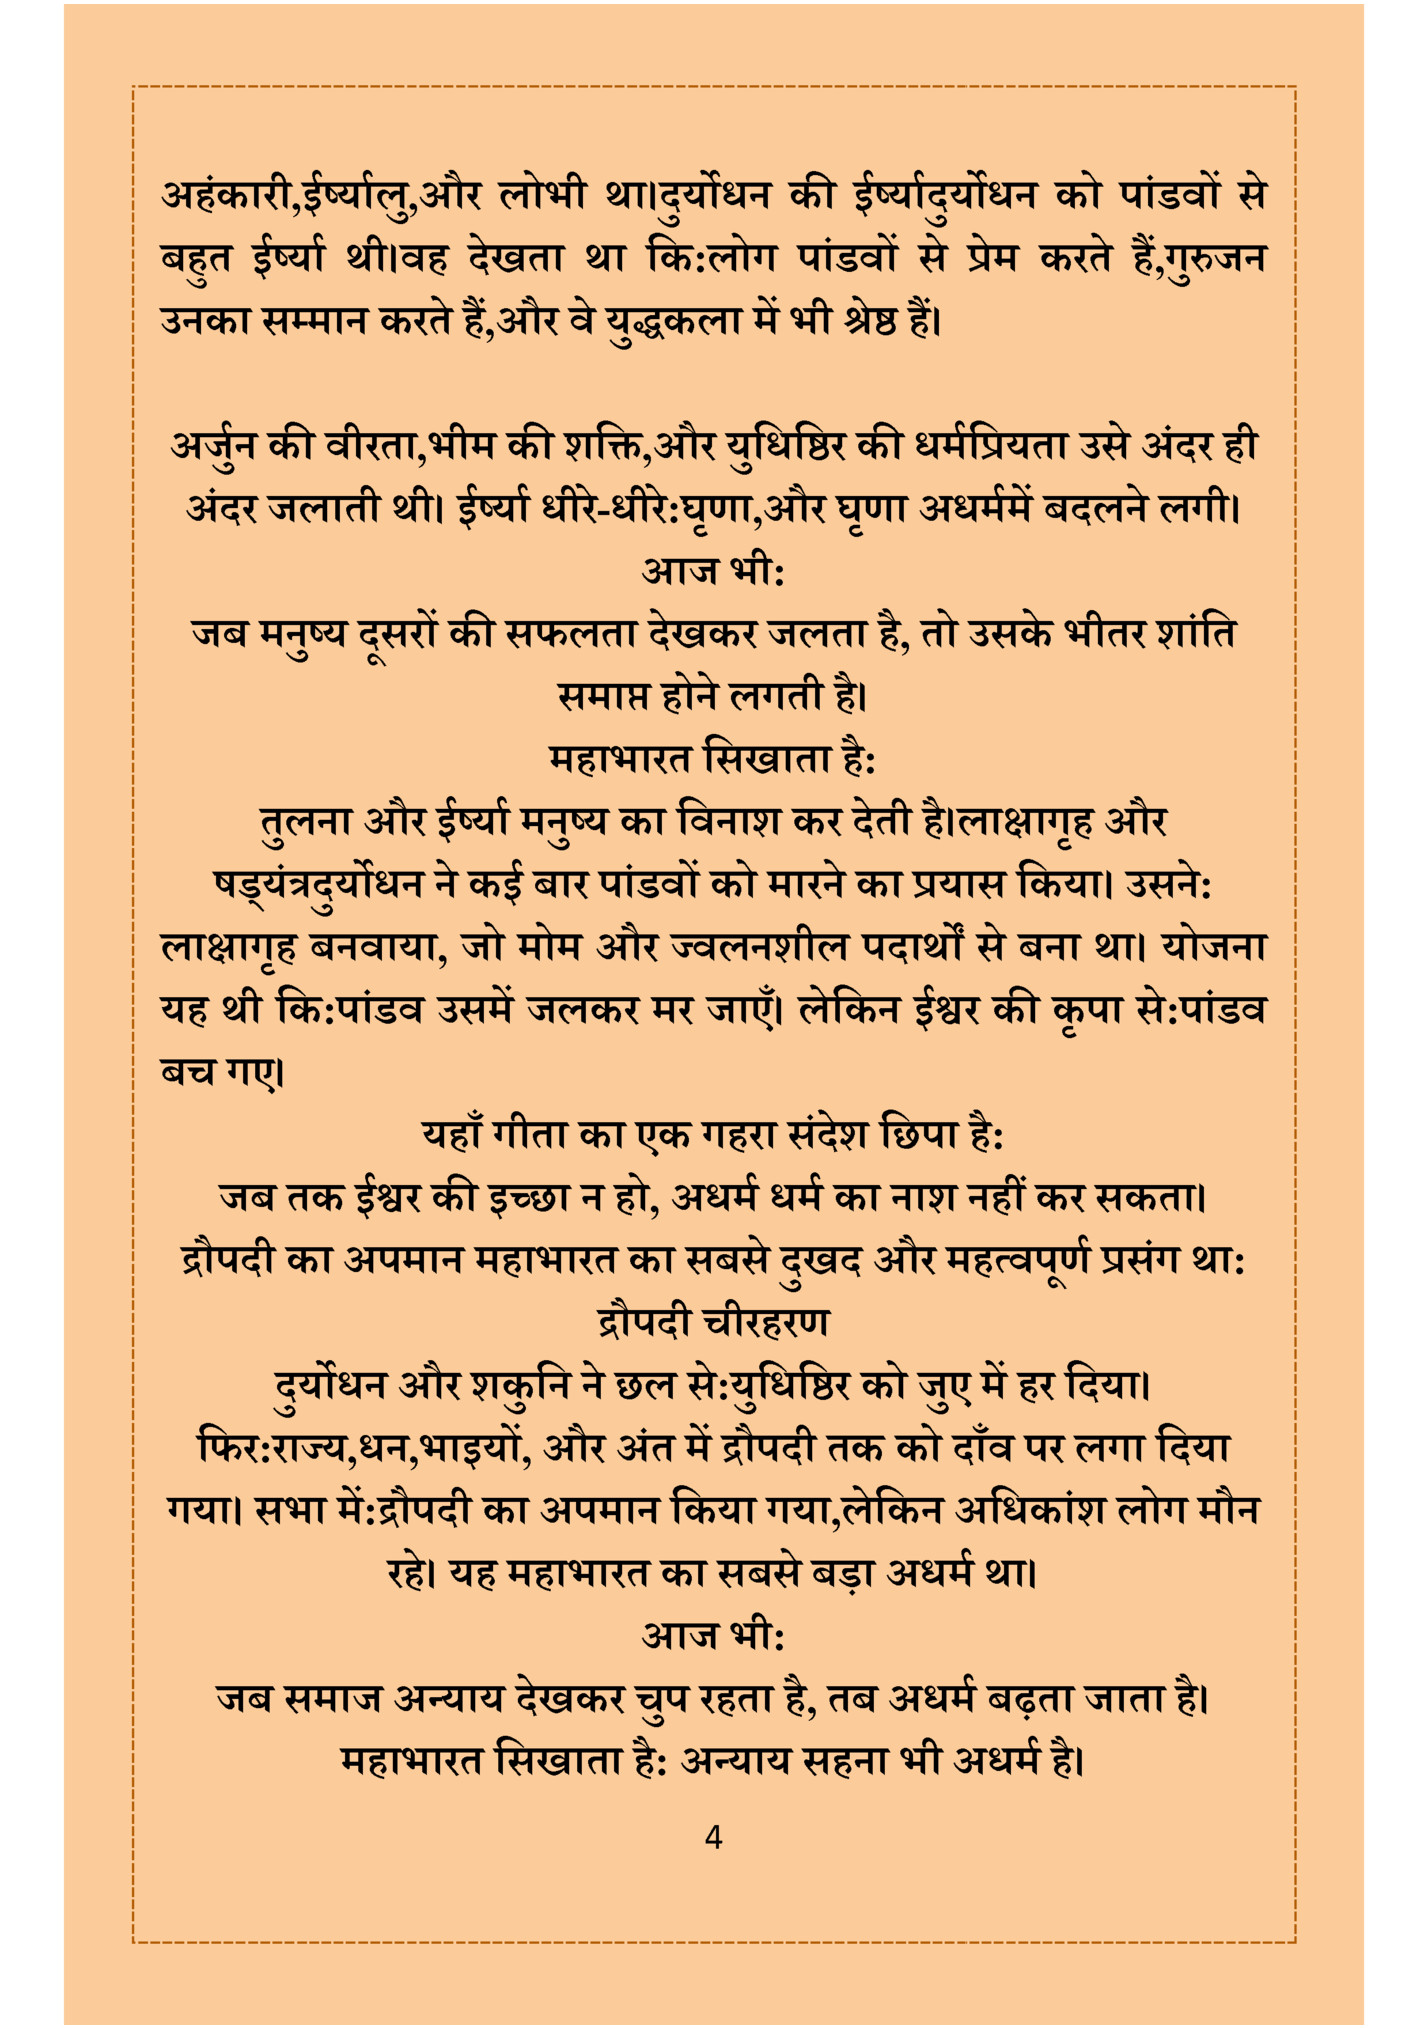 अहंकारी,ईर्ष्यालु,और लोभी था।दुर्योधन की ईर्ष्यादुर्योधन को पांडवों से
बहुत ईर्ष्या थी।वह देखता था कि:लोग पांडवों से प्रेम करते हैं,गुरुजन
उनका सम्मान करते हैं,और वे युद्धकला में भी श्रेष्ठ हैं।
अर्जुन की वीरता,भीम की शक्ति,और युधिष्ठिर की धर्मप्रियता उसे अंदर ही
अंदर जलाती थी। ईर्ष्या धीरे-धीरे:घृणा,और घृणा अधर्ममें बदलने लगी।
आज भी:
जब मनुष्य दूसरों की सफलता देखकर जलता है, तो उसके भीतर शांति
समाप्त होने लगती है।
महाभारत सिखाता है:
तुलना और ईर्ष्या मनुष्य का विनाश कर देती है।लाक्षागृह और
षड्यंत्रदुर्योधन ने कई बार पांडवों को मारने का प्रयास किया। उसने:
लाक्षागृह बनवाया, जो मोम और ज्वलनशील पदार्थों से बना था। योजना
यह थी कि:पांडव उसमें जलकर मर जाएँ। लेकिन ईश्वर की कृपा से:पांडव
बच गए।
यहाँ गीता का एक गहरा संदेश छिपा है:
जब तक ईश्वर की इच्छा न हो, अधर्म धर्म का नाश नहीं कर सकता।
द्रौपदी का अपमान महाभारत का सबसे दुखद और महत्वपूर्ण प्रसंग था:
द्रौपदी चीरहरण
दुर्योधन और शकुनि ने छल से:युधिष्ठिर को जुए में हर दिया।
फिर:राज्य,धन,भाइयों, और अंत में द्रौपदी तक को दाँव पर लगा दिया
गया। सभा में:द्रौपदी का अपमान किया गया,लेकिन अधिकांश लोग मौन
रहे। यह महाभारत का सबसे बड़ा अधर्म था।
आज भी:
जब समाज अन्याय देखकर चुप रहता है, तब अधर्म बढ़ता जाता है।
महाभारत सिखाता है: अन्याय सहना भी अधर्म है।
4